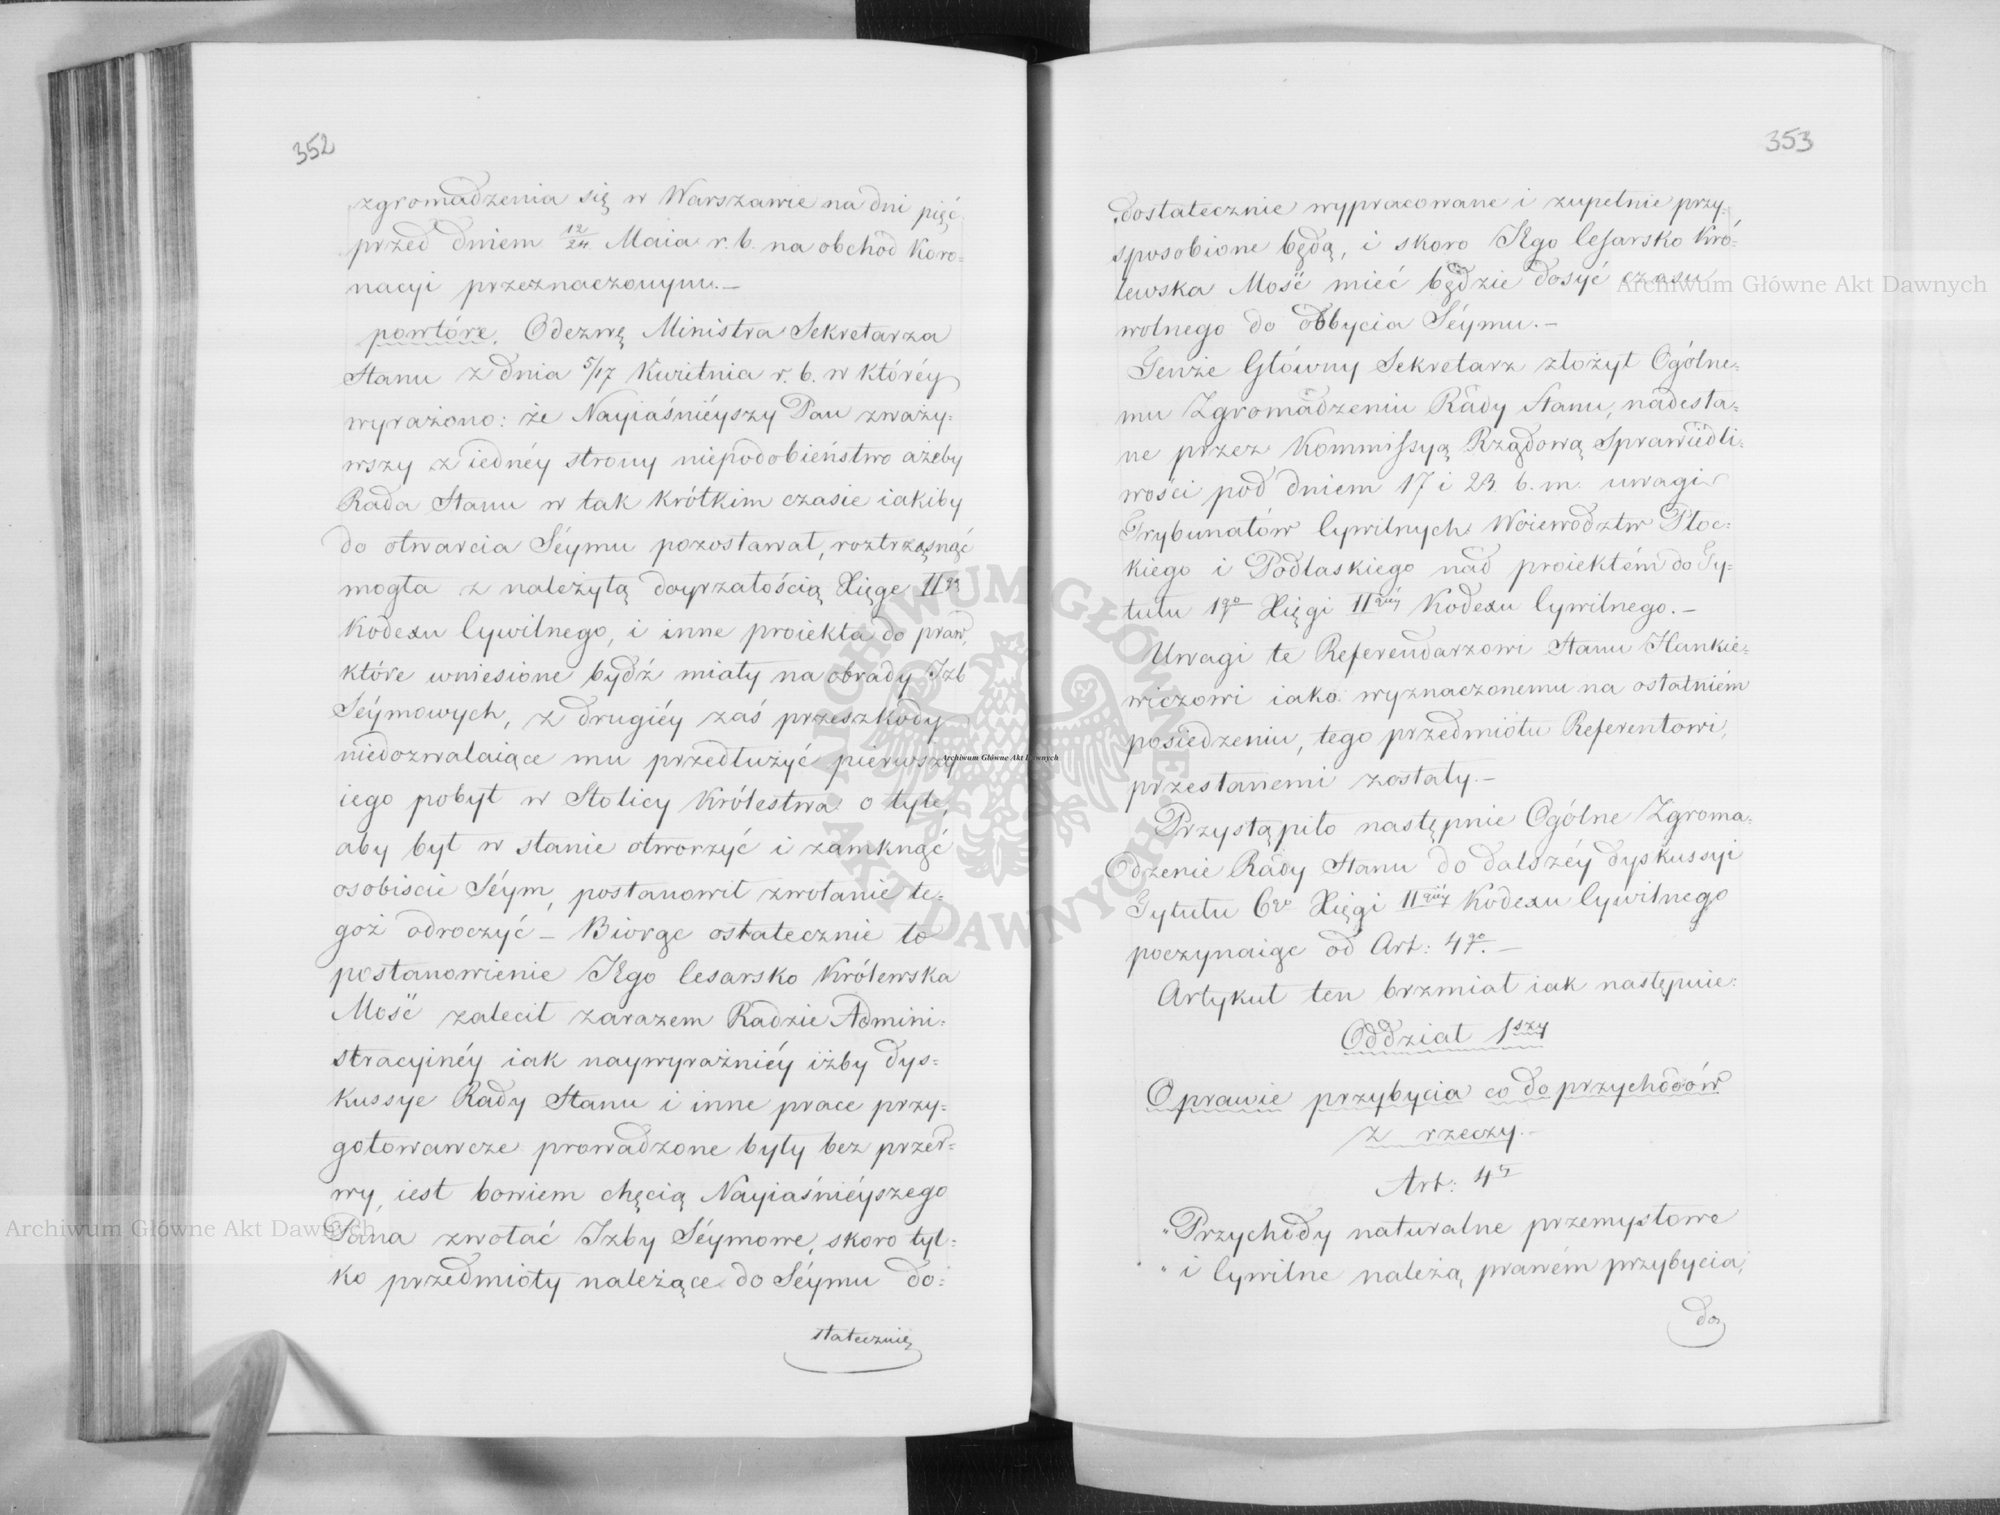 352
zgromadzenia się w Warszawie na dni pięć
przed dniem 12/24 Maia r. b. na obchod Koro=
nacyi przeznaczonym.—
powtóre. Odezwę Ministra Sekretarza
Stanu z dnia 5/17 Kwietnia r. b. w któréy
wyrażono: że Nayiaśniéyszy Pan zważy=
wszy z iednéy strony niepodobieństwo ażeby
Rada Stanu w tak krótkim czasie iakiby
do otwarcia Séymu pozostawał, roztrząsnąć
mogła z należytą doyrzałością Xięgę IIgą
Kodexu Cywilnego, i inne proiekta do praw,
które wniesione bydź miały na obrady Izb
Séymowych, z drugiéy zaś przeszkody
niedozwalaiące mu przedłużyć pierwszy
iego pobyt w Stolicy Królestwa o tyle,
aby był w stanie otworzyć i zamknąć
osobiście Séym, postanowił zwołanie te=
goż odroczyć — Biorąc ostatecznie to
postanowienie JEgo Cesarsko Królewska
Mość zalecił zarazem Radzie Admini=
stracyinéy iak naywyraźniéy iżby dys=
kussye Rady Stanu i inne prace przy=
gotowawcze prowadzone były bez przer=
wy, iest bowiem chęcią Nayiaśniéyszego
Pana zwołać Izby Séymowe, skoro tyl=
ko przedmioty należące do Séymu do=
statecznie
353
dostatecznie wypracowane i zupełnie przy=
sposobione będą, i skoro JEgo Cesarsko Kró=
lewska Mość mieć będzie dosyć czasu
wolnego do odbycia Séymu.—
Tenże Główny Sekretarz złożył Ogólne=
mu Zgromadzeniu Rady Stanu, nadesła=
ne przez Kommissyą Rządową Sprawiedli=
wości pod dniem 17 i 23 b. m. uwagi
Trybunałów Cywilnych Woiewództw Płoc=
kiego i Podlaskiego nad proiektém do Ty=
tułu 1go Xięgi IIgiéy Kodexu Cywilnego.—
Uwagi te Referendarzowi Stanu Hankie=
wiczowi iako wyznaczonemu na ostatniém
posiedzeniu, tego przedmiotu Referentowi,
przesłanemi zostały.—
Przystąpiło następnie Ogólne Zgroma=
dzenie Rady Stanu do dalszéy dyskussyi
Tytułu 6go Xięgi IIgiéy Kodexu Cywilnego
poczynaiąc od Art: 4go.—
Artykuł ten brzmiał iak następuie:
Oddział 1szy
O prawie przybycia co do przychodów
z rzeczy.—
Art: 4ty
"Przychody naturalne przemysłowe
" i Cywilne należą prawém przybycia,
do
Archiwum Główne Akt Dawnych
Archiwum Główne Akt Dawnych
Archiwum Główne Akt Dawnych
ARCHIWUM GŁÓWNE AKT DAWNYCH